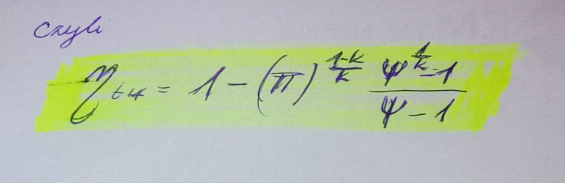 Czyli
η_tH = 1 - (π)^{\frac{1-k}{k}} \frac{ψ^{\frac{1}{k}} - 1}{ψ - 1}